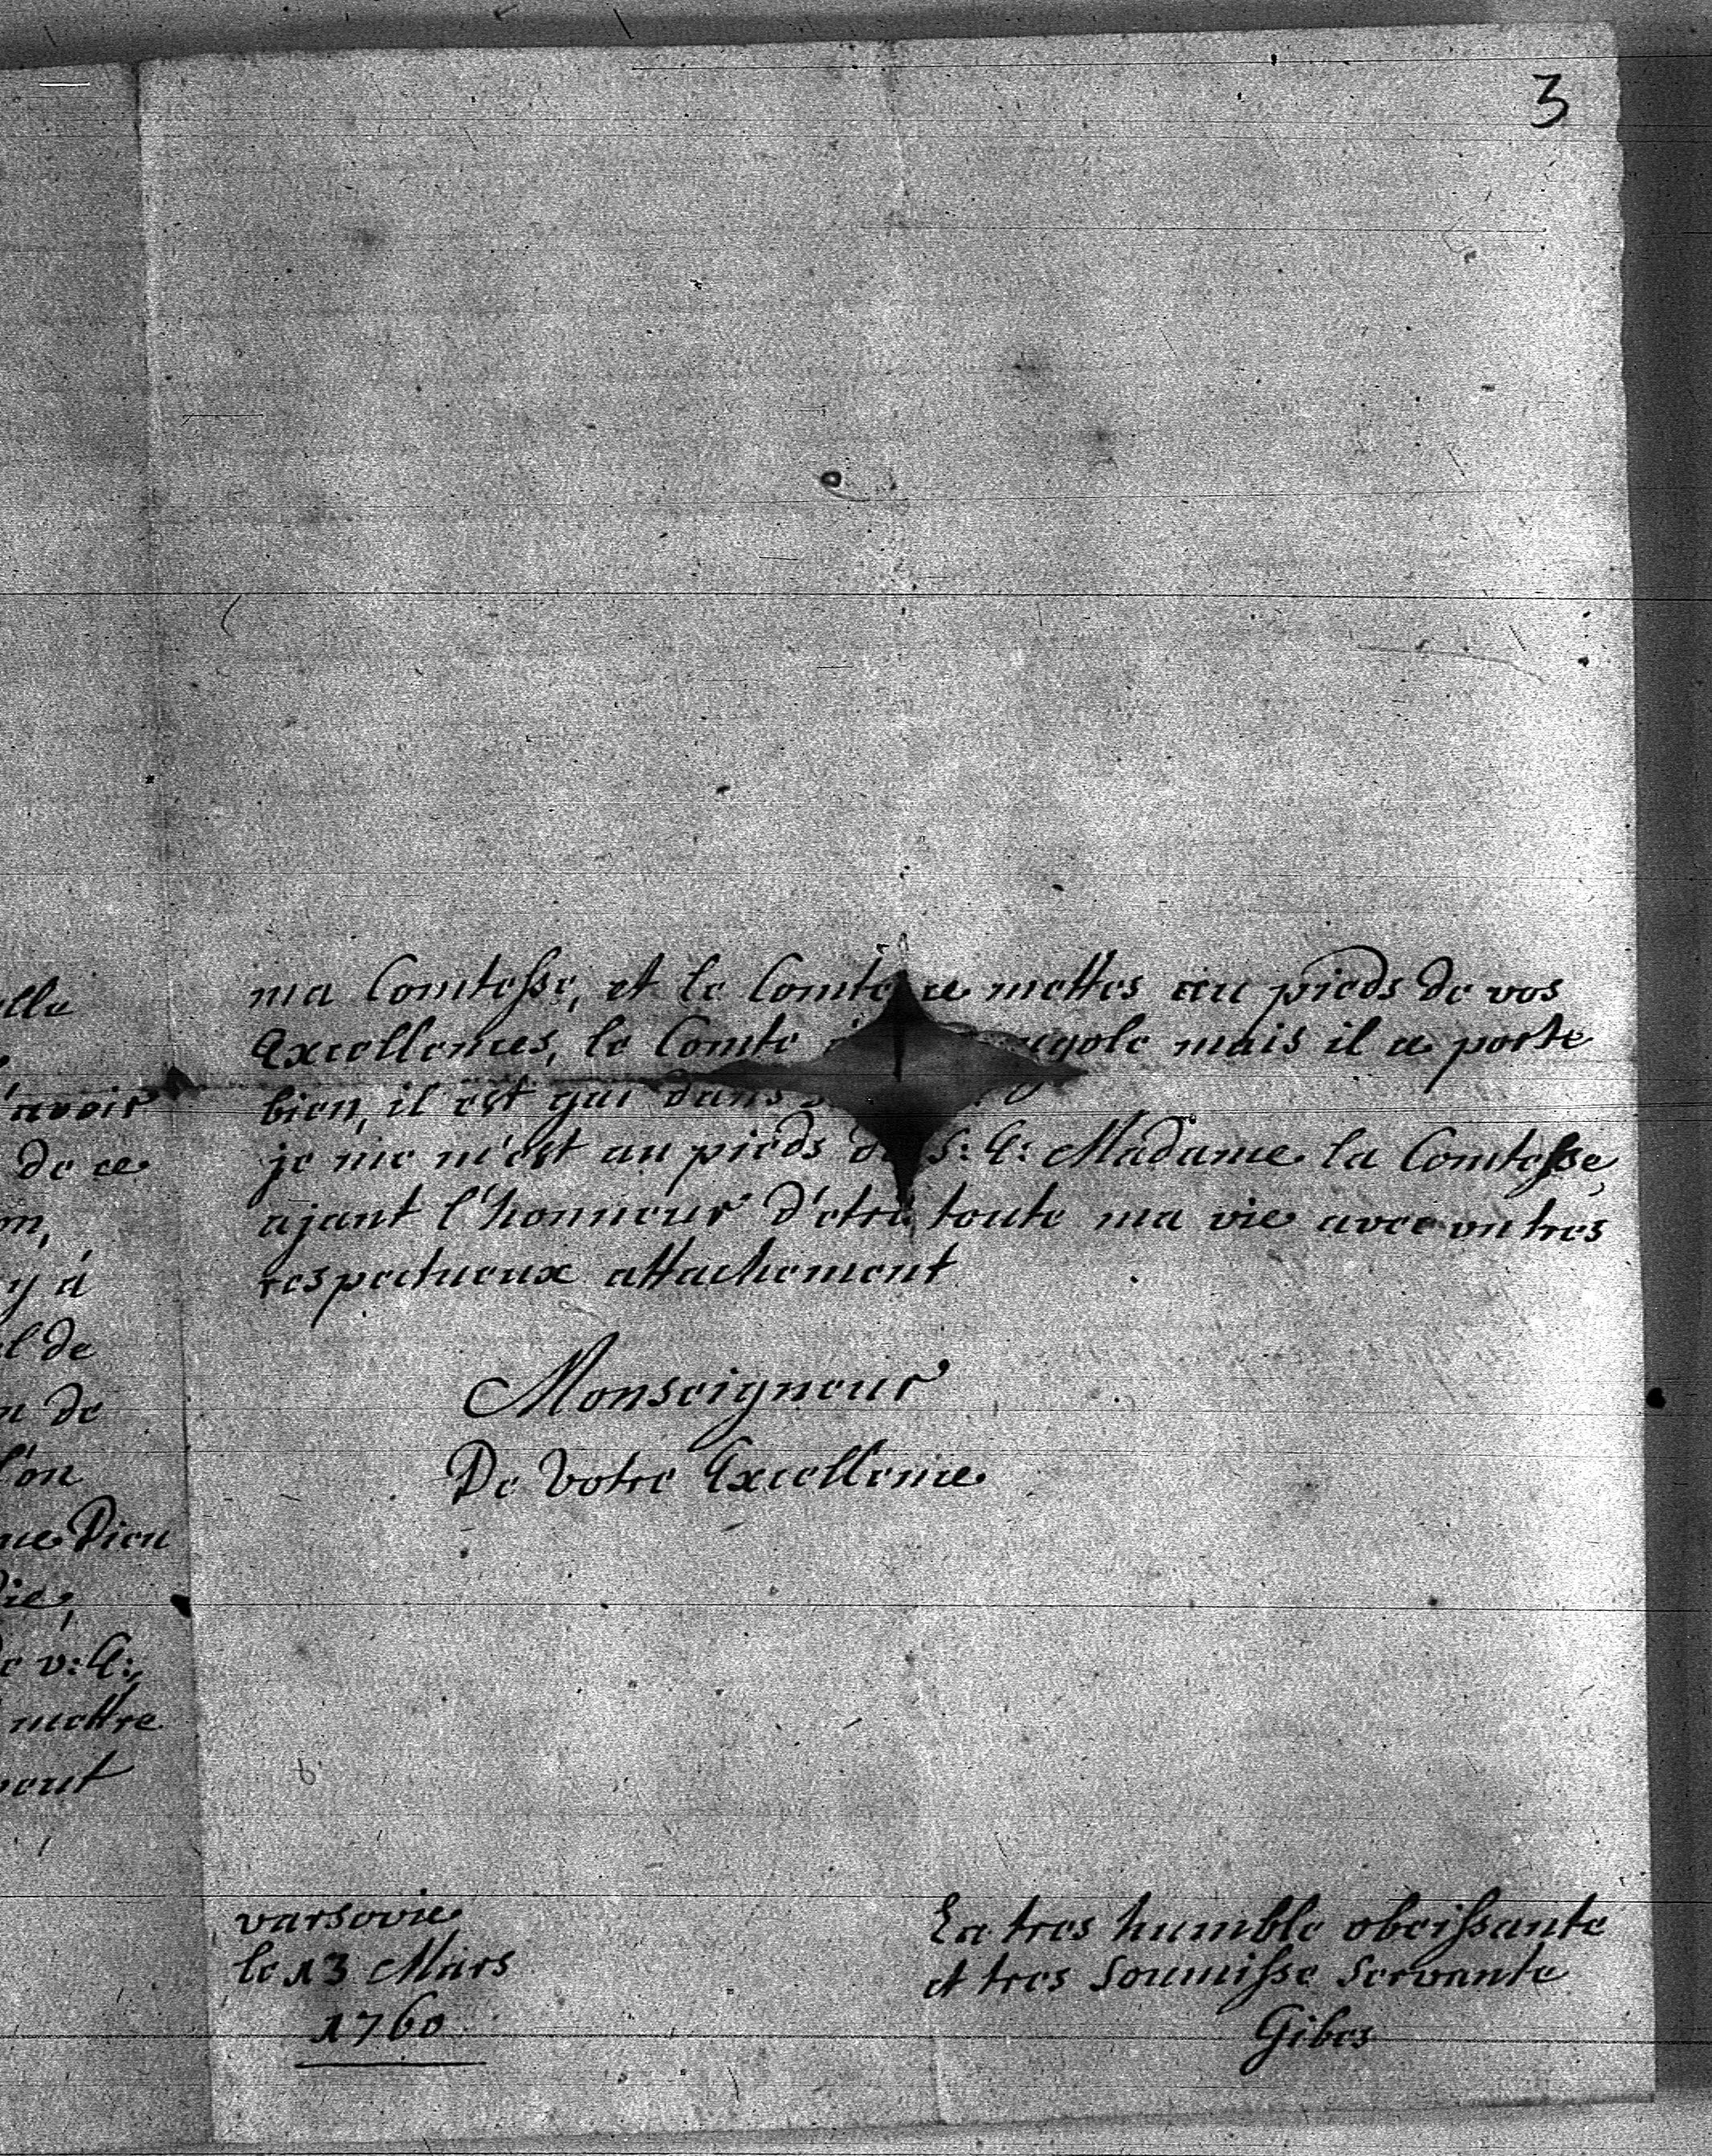 3
ma Comtesse, et le Comte ce mettes au pieds de vos
Excellences, le Comte mais il a porte
bien, il est gai dans
je me m'est au pieds de S: E: Madame la Comtesse,
ajant l'honneur d'etre toute ma vie avec un tres
respectueux attachement
Monseigneur
De Votre Excellence
varsovie
le 13 Mars
1760
La tres humble obeissante
et tres soumisse servante
Gibes
elle
avoir
de ce
on,
y á
el de
n de
l'on
me Dieu
vie,
de v: E:,
mettre
peut